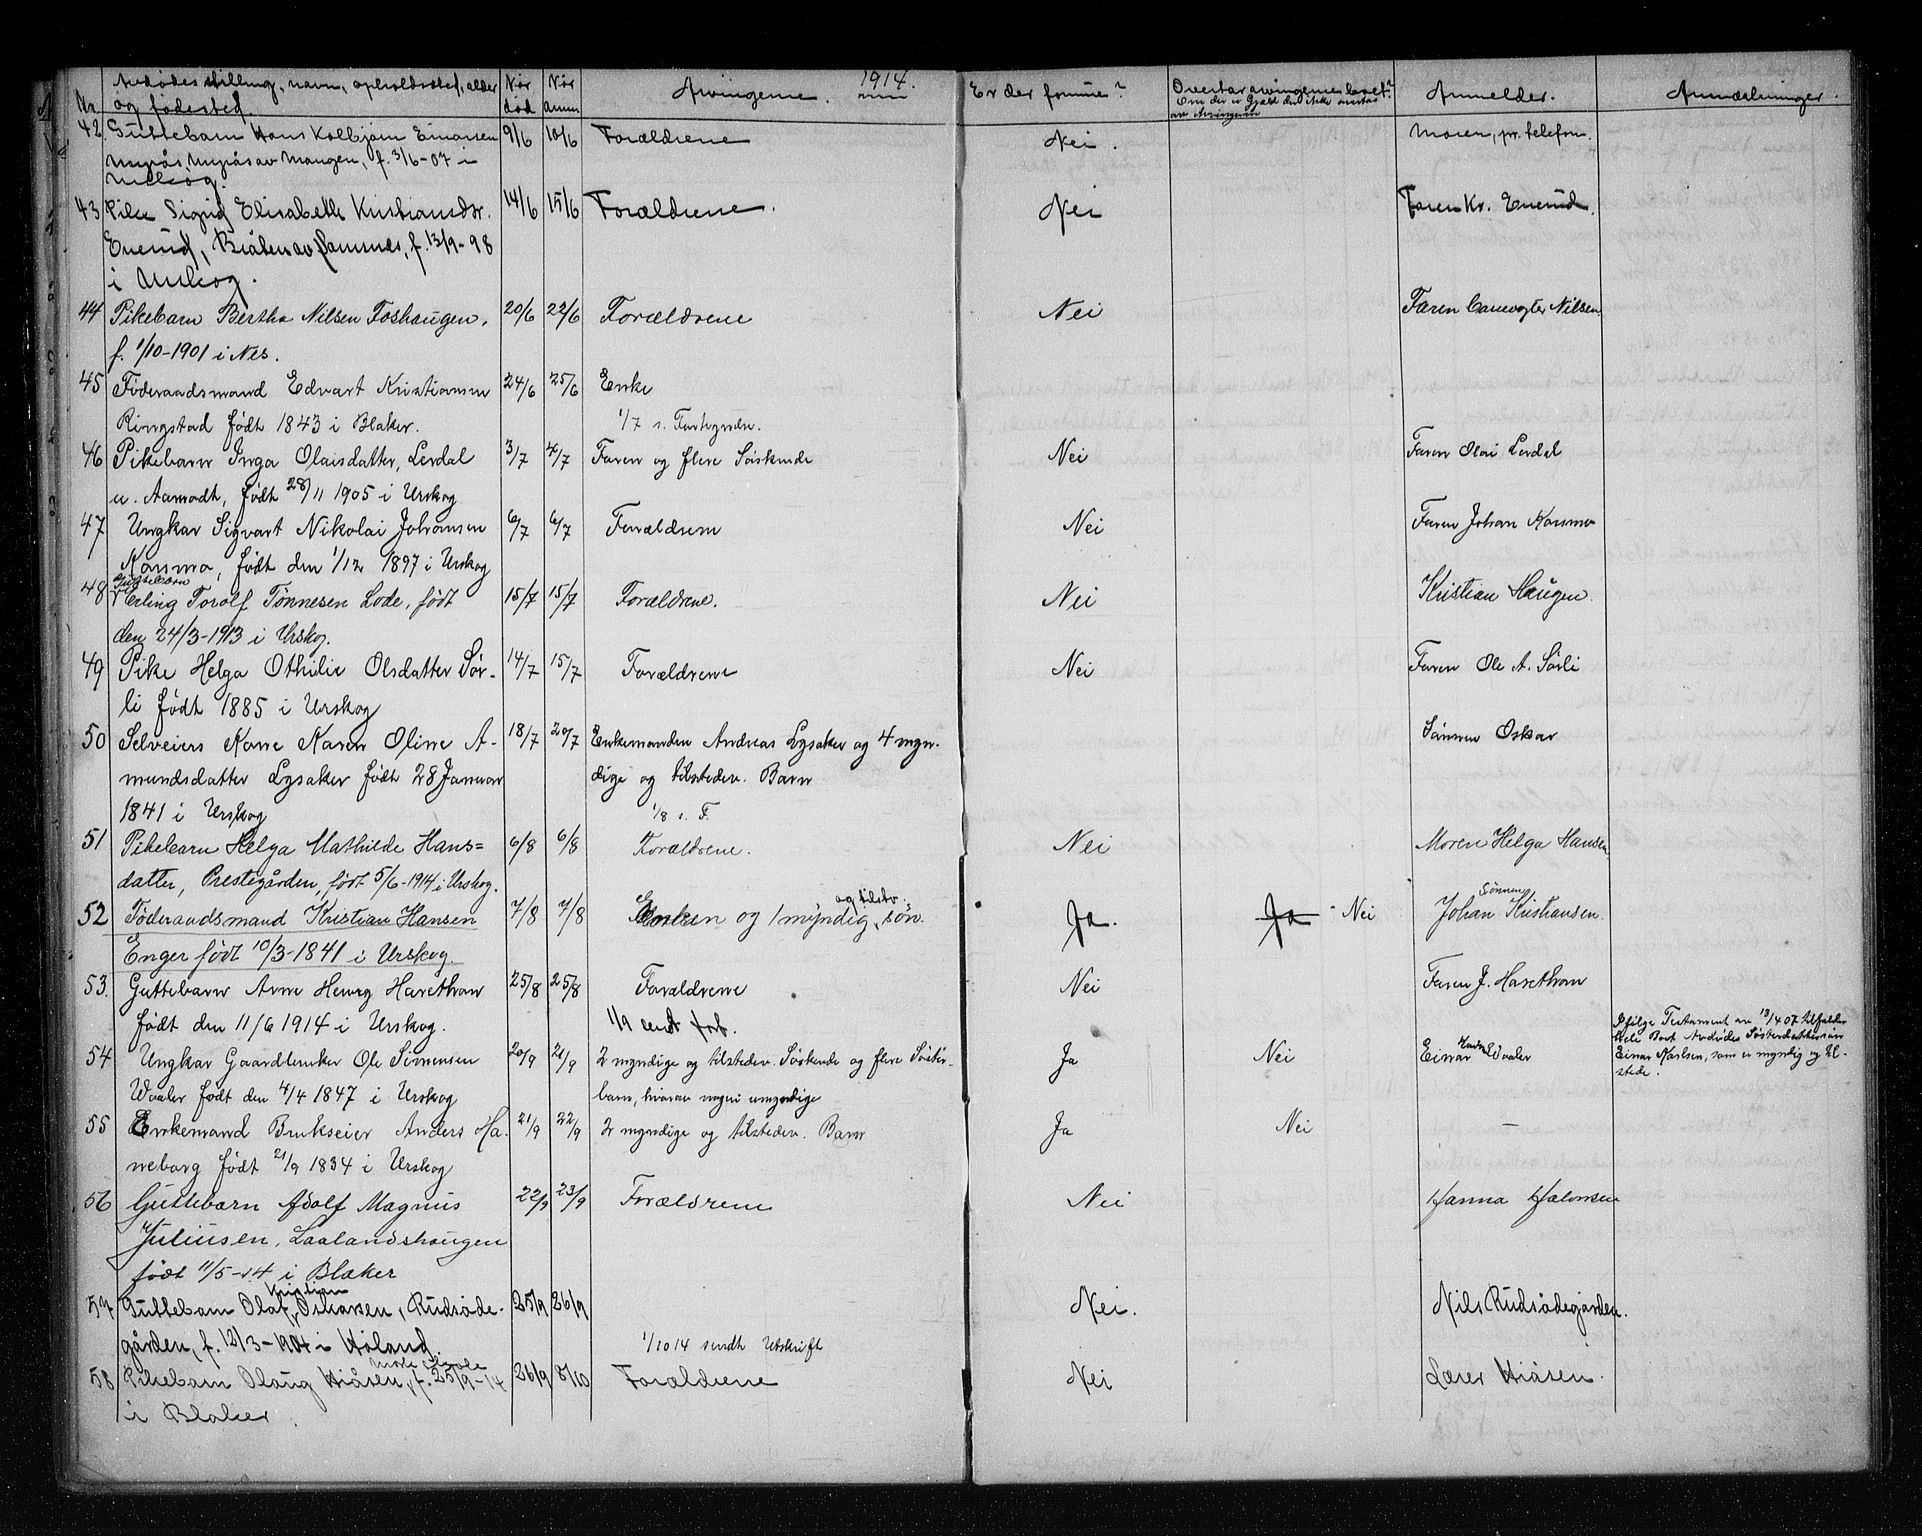 1914.
Nr. Avdødes stilling, navn, opholdssted, alder og fødested. Når død Når anm. Arvingerne. Er der formue? Overtar arvingerne boet? Om der er Gjæld den ikke overtas av Arvingerne Anmelder. Anmerkninger.
42. Guttebarn Hans Kolbjørn Einarsen 9/6 10/6 Forældrene Nei. Moren, pr. telefon.
av Mangen, f. 3/6-07 i
Urskog.
43 Pike Sigrid Elisabeth Kristiansdr. 14/6 15/6 Forældrene. Nei Faren Kr. Enerud.
Enerud, Bråten av f. 13/9-98
i Urskog.
44 Pikebarn Bertha Nilsen Foshaugen, 20/6 22/6 Forældrene Nei Faren Banevogter Nilsen.
f. 1/10-1901 i Nes.
45 Føderaadsmand Edvart Kristiansen 24/6 25/6 Enke
Ringstad født 1843 i Blaker. 1/7 s.
46 Pikebarn Inga Olaisdatter, Lerdal 3/7 4/7 Faren og flere Søskende Nei Faren Olai Lerdal
u. Aamodt, født 28/11 1905 i Urskog
47 Ungkar Sigvart Nikolai Johansen 6/7 6/7 Forældrene Nei Faren Johan Kansmo
Kansmo, født den 1/12 1897 i Urskog
48 Guttebarn Erling Torolf Tønnesen Lode, født 15/7 15/7 Forældrene. Nei Kristian Haugen.
den 24/3-1913 i Urskog.
49 Pike Helga Othilie Olsdatter Sør- 14/7 15/7 Forældrene Nei Faren Ole A. Sørli
li født 1885 i Urskog
50 Selveiers Kone Karen Oline A- 18/7 20/7 Enkemanden Andreas Lysaker og 4 myn- Sønnen Oskar
mundsdatter Lysaker født 28 Januar dige og tilstedev. Barn
1841 i Urskog 1/8 s. F.
51 Pikebarn Helga Mathilde Hans= 6/8 6/8 Forældrene. Nei Moren Helga Hansen.
datter, Prestegården, født 5/6-1914 i Urskog.
52 Føderaadsmand Kristian Hansen 7/8 7/8 Enken og 1 myndig og tilstv. søn. Ja. Ja - Nei Sønnen Johan Kristiansen.
Enger født 10/3-1841 i Urskog.
53. Guttebarn Arne Henry Harethon 25/8 25/8 Forældrene Nei Faren J. Harethon
født den 11/6 1914 i Urskog. 1/9 sendt fort.
54 Ungkar Gaardbruker Ole Simensen 20/9 21/9 2 myndige og tilstedev. Søskende og flere Søster- Ja Nei Einar Waaler Ifølge Testament av 13/4 07 tilfalder
Waaler født den 4/4 1847 i Urskog barn, hvorav nogen umyndige hele Boet Avdødes Søsterdattersøn
Einar Karlsen, som er myndig og til-
stede.
55 Enkemand Brukseier Anders Ha- 21/9 22/9 2 myndige og tilstedev. Barn Ja Nei -
neborg født 21/9 1834 i Urskog
56 Guttebarn Adolf Magnus 22/9 23/9 Forældrene Nei Hanna Halvorsen
Juliusen, Laalandshaugen
født 11/5-14 i Blaker
57 Guttebarn Olaf Kristian Oskarsen, Rudsøde- 25/9 26/9 Nei. Nils Rudsødegården.
gården, f. 12/3-1904 i Høland. 1/10 14 sendt Utskrift
58 Pikebarn Olaug Hiåsen, f. 25/9-14 26/9 8/10 Forældrene Nei Lærer Hiåsen.
i Blaker.